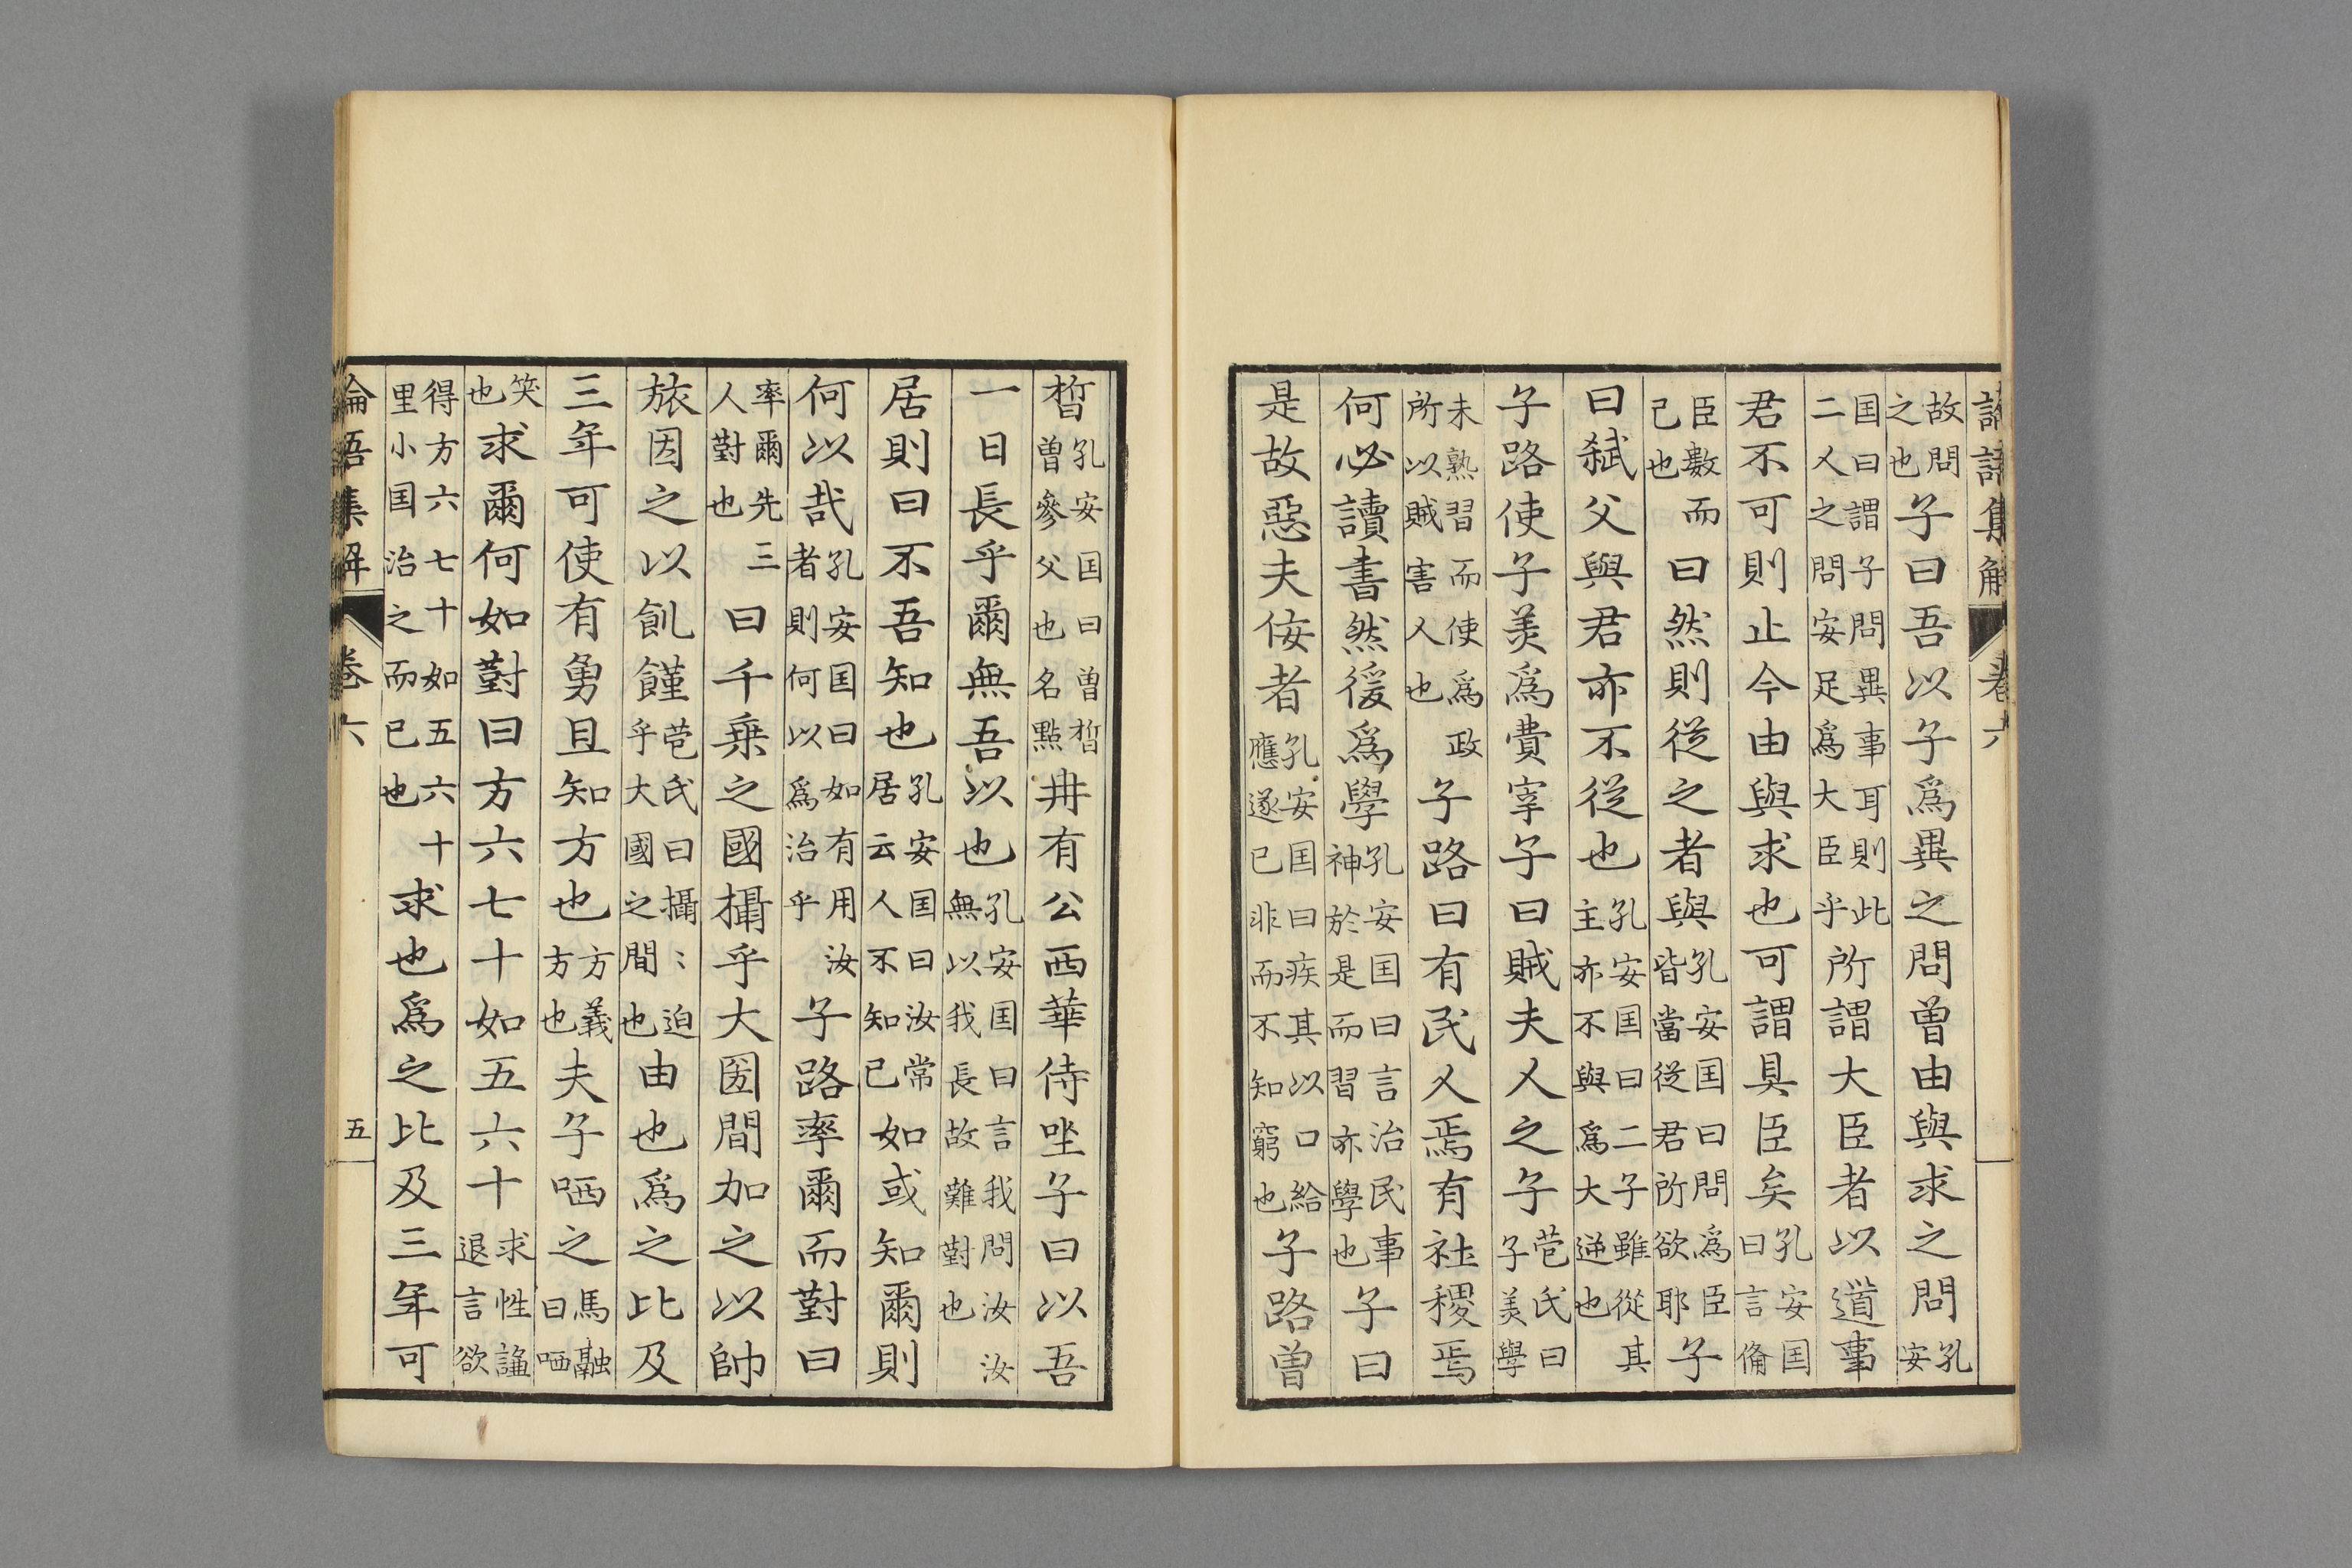 論語集解 卷六
故問之也子曰吾以子爲異之問曾由與求之問孔安
国曰謂子問異事耳則此二人之問安足爲大臣乎所謂大臣者以道事
君不可則止今由與求也可謂具臣矣孔安国曰言俻
臣數而已也曰然則從之者與孔安国曰問爲臣皆當從君所欲耶子
曰弑父與君亦不從也孔安国曰二子雖從其主亦不與爲大逆也
子路使子羔爲費宰子曰賊夫人之子苞氏曰子羔學
未熟習而使爲政所以賊害人也子路曰有民人焉有社稷焉
何必讀書然後爲學孔安国曰言治民事神於是而習亦學也子曰
是故惡夫佞者孔安国曰疾其以口給應遂己非而不知窮也子路曾
晳孔安国曰曾晳曾參父也名點冉有公西華侍坐子曰以吾
一日長乎爾無吾以也孔安国曰言我問汝汝無以我長故難對也
居則曰不吾知也孔安国曰汝常居云人不知己如或知爾則
何以哉孔安国曰如有用汝者則何以爲治乎子路率爾而對曰
率爾先三人對也曰千乗之國攝乎大国間加之以帥
旅因之以飢饉苞氏曰攝〻迫乎大國之間也由也爲之比及
三年可使有勇且知方也方義方也夫子哂之馬融曰哂
笑也求爾何如對曰方六七十如五六十求性謙退言欲
得方六七十如五六十里小国治之而已也求也爲之比及三年可
論語集解 卷六 五